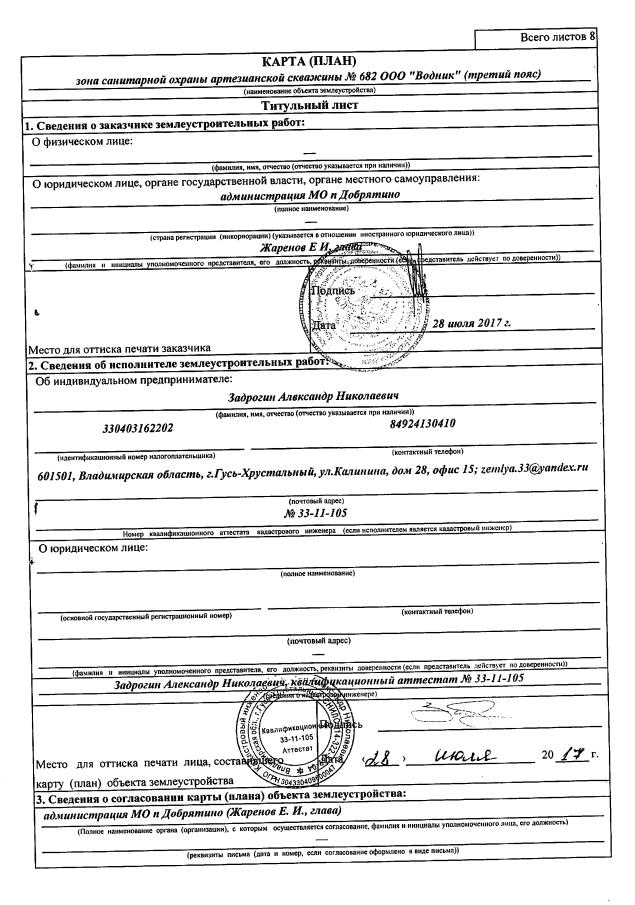 Всего листов 8
КАРТА (ПЛАН)
зона санитарной охраны артезианской скважины № 682 ООО "Водник" (третий пояс)
(наименование объекта землеустройства)
Титульный лист
1. Сведения о заказчике землеустроительных работ:
О физическом лице:
—
(фамилия, имя, отчество (отчество указывается при наличии))
О юридическом лице, органе государственной власти, органе местного самоуправления:
администрация МО п Добрятино
(полное наименование)
—
(страна регистрации (инкорпорации) (указывается в отношении иностранного юридического лица))
Жаренов Е И, глава
(фамилия и инициалы уполномоченного представителя, его должность, реквизиты доверенности (если представитель действует по доверенности))
Подпись
Дата 28 июля 2017 г.
Место для оттиска печати заказчика
2. Сведения об исполнителе землеустроительных работ:
Об индивидуальном предпринимателе:
Задрогин Алвксандр Николаевич
(фамилия, имя, отчество (отчество указывается при наличии))
330403162202 84924130410
(идентификационный номер налогоплательщика) (контактный телефон)
601501, Владимирская область, г.Гусь-Хрустальный, ул.Калинина, дом 28, офис 15; zemlya.33@yandex.ru
(почтовый адрес)
№ 33-11-105
Номер квалификационного аттестата кадастрового инженера (если исполнителем является кадастровый инженер)
О юридическом лице:
(полное наименование)
(основной государственный регистрационный номер) (контактный телефон)
(почтовый адрес)
—
(фамилия и инициалы уполномоченного представителя, его должность, реквизиты доверенности (если представитель действует по доверенности))
Задрогин Александр Николаевич, квалификационный аттестат № 33-11-105
Квалификационный
33-11-105
Аттестат
Подпись
Место для оттиска печати лица, составившего Дата «28» июля 2017 г.
карту (план) объекта землеустройства
3. Сведения о согласовании карты (плана) объекта землеустройства:
администрация МО п Добрятино (Жаренов Е. И., глава)
(Полное наименование органа (организации), с которым осуществляется согласование, фамилия и инициалы уполномоченного лица, его должность)
—
(реквизиты письма (дата и номер, если согласование оформлено в виде письма))